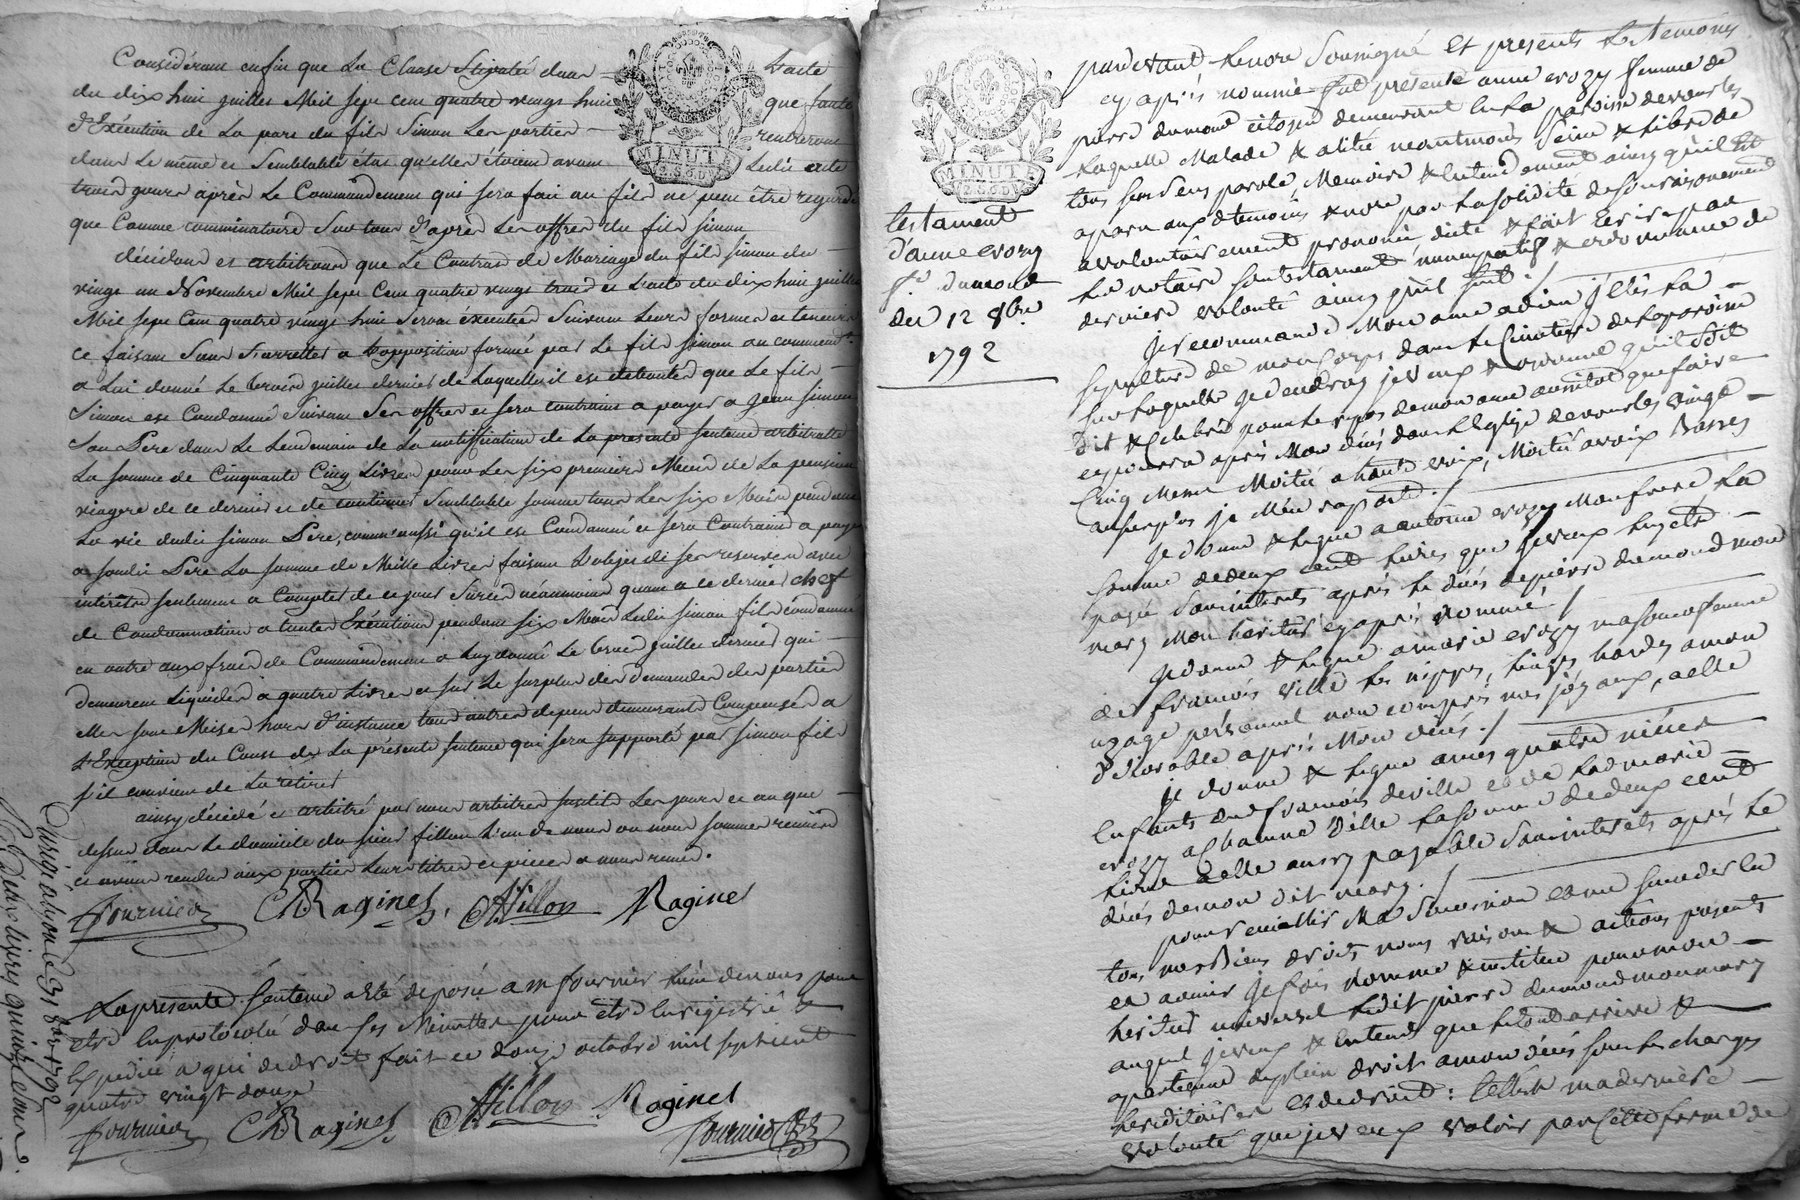 Considérant enfin que la Clause Stipulée dans l'acte
du dix huit juillet Mil sept cent quatre vingt huit que faute
d'Exécution de la part du fils Simon les parties rentreront
dans le même et Semblable état qu'elles étoient avant ledit acte
trois jours après le Commandement qui sera fait au fils ne peut être regardé
que Comme comminatoire Sur tout d'après les offres du fils simon
décidons et arbitrons que le Contrat de Mariage du fils simon du
vingt un Novembre Mil sept Cent quatre vingt trois et l'acte du dix huit juillet
Mil sept Cent quatre vingt huit Seront exécutés Suivant leurs formes et teneurs
ce faisant Sans s'arretter a l'opposition formée par le fils simon au commend.t
a lui donné le trois juillet dernier de laquelle il est debouté que le fils
Simon est Condamné Suivant Ses offres et sera contraint a payer a jean simon
Son Père dans le lendemain de la notiffication de la presente sentence arbitralle
la somme de Cinquante Cinq livres pour les six premiers Mois de la pension
viagere de ce dernier et de continuer Semblable somme tous les six Mois pendant
la vie dudit simon Père, comm'aussi qu'il est Condamné et sera Contraint a payer
a sondit Père la somme de Mille livres faisant l'objet de ses reserves avec
intérêts seulement a Compter de ce jour Sursis néanmoins quant a ce dernier chef
de Condamnation a toutes Exécutions pendant six Mois ledit simon fils condamné
en outre aux frais de Commandement a luy donné le trois juillet dernier qui
demeurent liquidés a quatre livres et sur le surplus des demandes des parties
elles sont Mises hors d'instance tous autres depens demeurants Compensés a
l'Exception du Coust de la présente sentence qui sera supporté par simon fils
s'il convient de la retirer
ainsy décidé et arbitré par nous arbitres susdits les jours et an que
dessus dans le domicile du sieur fillon l'un de nous ou nous sommes reunis
et avons rendu aux parties leurs titres et pièces a nous remis.
Fournier Ragines fillon Raginel
La presente sentence a été deposée a m fournier l'un de nous pour
etre en protocolée dans ses Minuttes pour etre Enregistrée &
Expediée a qui de droit fait ce douze octobre mil sept cent
quatre vingt douze
Fournier Ragines fillon Raginel Fournier
Enrégistré a lyon le 31 8bre 1792
Reçu deux livres quinze sous
MINUTE
2.S.6.D
MINUTE
2.S.6.D
testament
d'anne crozy
f.e dumond
du 12 8bre
1792
pardevant le no.re Soussigné Et présents les temoins
cy après nommés fut presente anne crozy femme de
pierre dumond citoyen demeurant en la paroisse de vourles
laquelle Malade & alitée neantmoins Seine & libre de
tous ses sens parole, Memoire & Entendement ainsy qu'il Est
aparu aux d temoins & no.re par la solidité de son raisonnement
a volontairement prononcé, dicté & fait Ecrire par
led notaire son testament nuncupatif & ordonnance de
derniere volonté ainsy qu'il suit /
Je recommande Mon ame a dieu j'Elis la
sepulture de mon Corps dans le Cimetiere de la paroisse
sur laquelle je decederay je veux & ordonne qu'il Soit
Dit & Celebré pour le repos de mon ame aussitot que faire
ce pourra après Mon décès dans l'Eglise de vourles vingt
Cinq Messes Moitié a haute voix, Moitié a voix Basses
au surplus je M'en raporte. /
Je donne & legue a antoine crozy Mon frere La
somme de deux cent livres que je veux luy etre
payée Sans interets après le décès de pierre dumond mon
mary Mon héritier cy après nommé. /
Je donne & legue a marie crozy ma sœur femme
de francois ville les nippes, linges hardes a mon
uzage personnel non compris mes joyaux, a elle
Delivrable après Mon décès. /
Je donne & legue a mes quatre niéces
Enfants du d francois deville et de lad marie
crozy a Chacune d'elle la somme de deux cent
livres a elle aussy payable Sans interets après le
décès de mon dit mary. /
pour recueillir Ma Succession et me succeder En
tous mes Biens droits noms raisons & actions présents
et avenir je fais nomme & institue pour mon
heritier universel ledit pierre dumond mon mary
auquel je veux & entends que le tout arrive &
apartienne de plein droit a mon décès sous les charges
hereditaires et de droit: telle est ma derniere
volonté que je veux valoir par Cette forme de